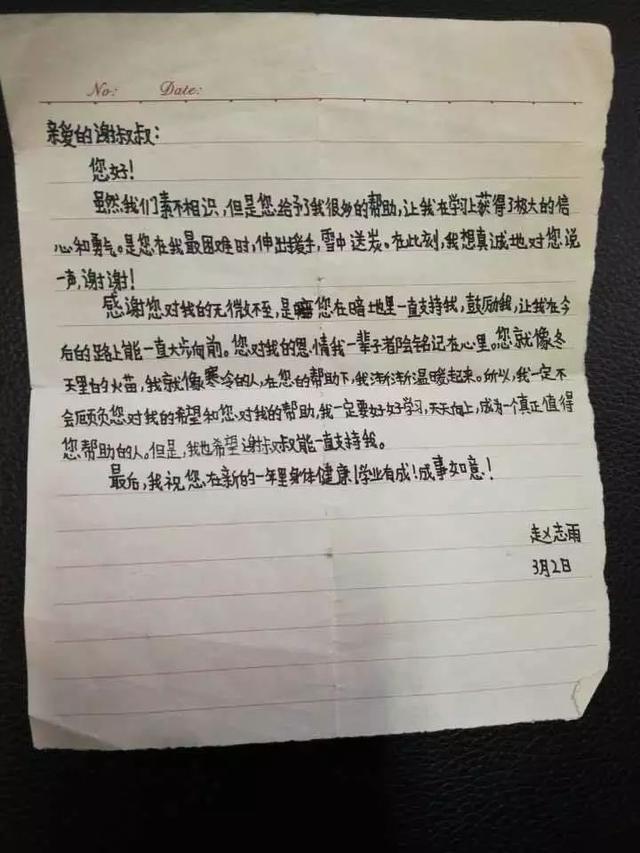 No: Date:
亲爱的谢叔叔：
您好！
虽然我们素不相识，但是您给予了我很多的帮助，让我在学习上获得了极大的信
心和勇气。是您在我最困难时，伸出援手，雪中送炭。在此刻，我想真诚地对您说
一声，谢谢！
感谢您对我的无微不至，是您在暗地里一直支持我，鼓励我，让我在今
后的路上能一直大步向前。您对我的恩情我一辈子都会铭记在心里。您就像冬
天里的火苗，我就像寒冷的人，在您的帮助下，我渐渐温暖起来。所以，我一定不
会辜负您对我的希望和您对我的帮助，我一定要好好学习，天天向上，成为一个真正值得
您帮助的人。但是，我也希望谢叔叔能一直支持我。
最后，我祝您在新的一年里身体健康！学业有成！成事如意！
赵志雨
3月2日